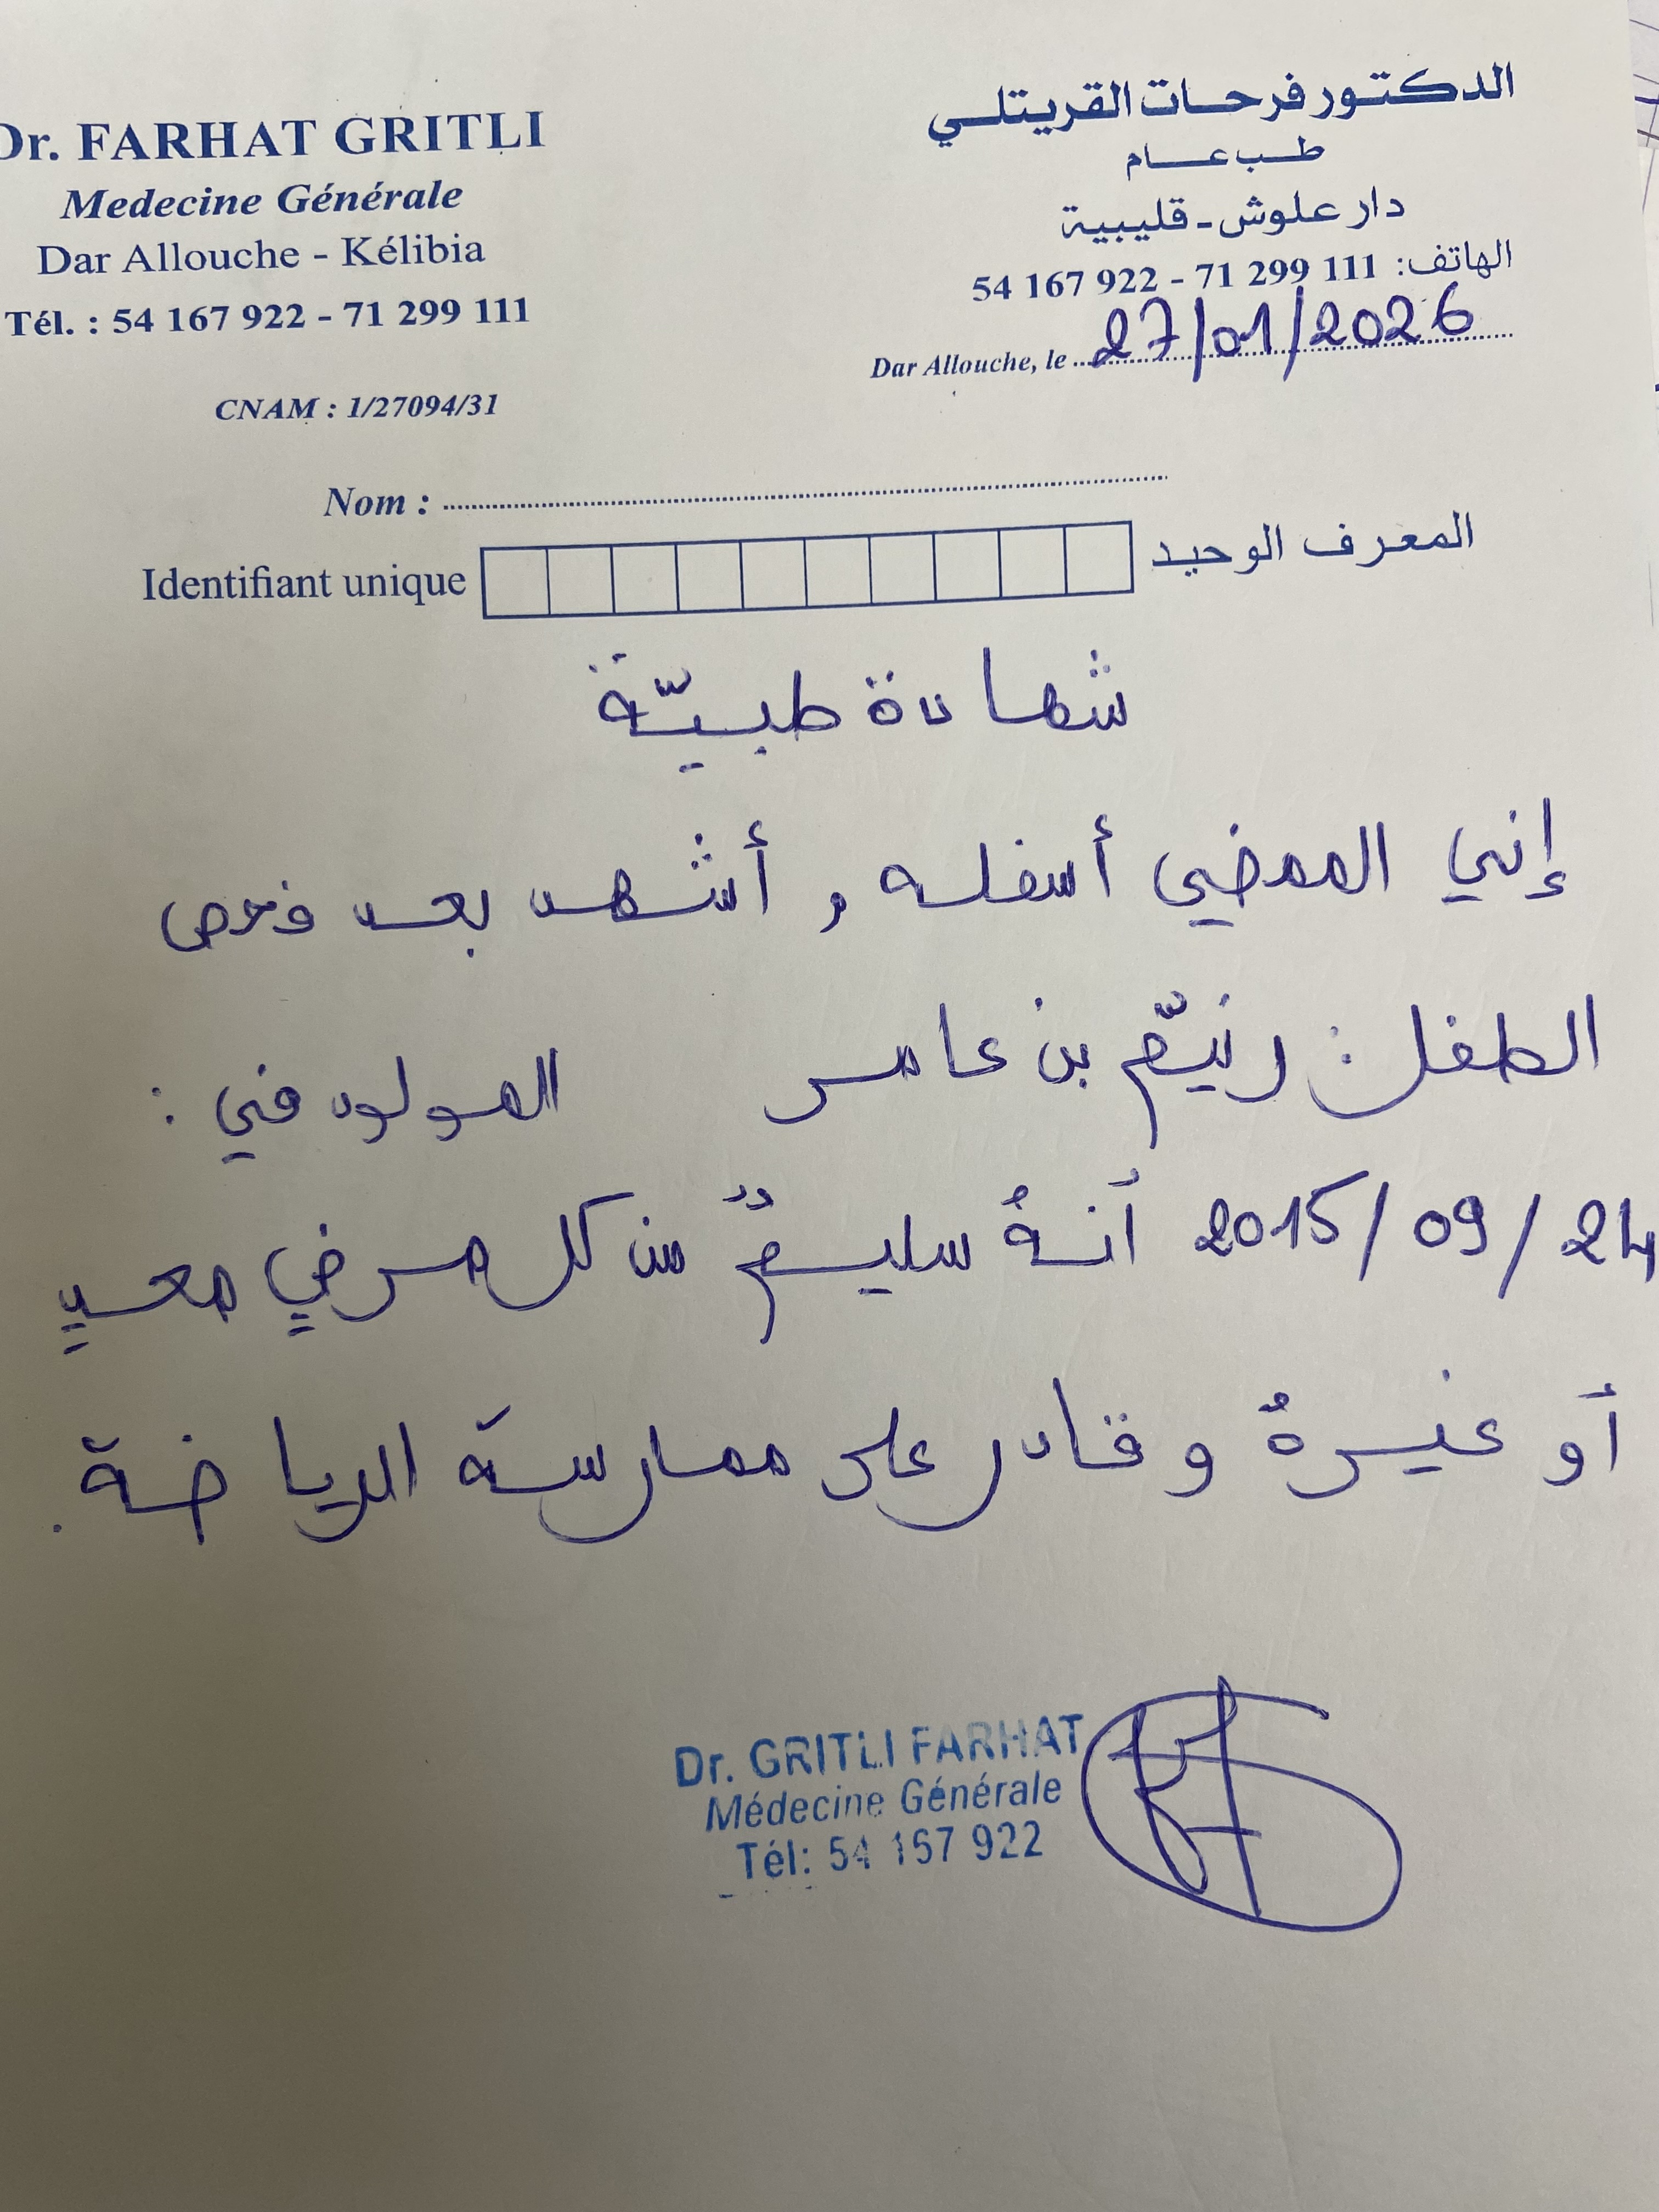 Dr. FARHAT GRITLI
Medecine Générale
Dar Allouche - Kélibia
Tél. : 54 167 922 - 71 299 111
CNAM : 1/27094/31
الدكتور فرحات القريتلي
طب عام
دار علوش - قليبية
الهاتف: 111 299 71 - 922 167 54
Dar Allouche, le 27/01/2026
Nom :
Identifiant unique المعرف الوحيد
شهادة طبيّة
إني الممضي أسفله، أشهد بعد فحص
الطفل: رنيّم بن عامر المولود في:
24/09/2015 أنهُ سليمٌ من كل مرضٍ معدٍ
أو غيرهُ و قادر على ممارسة الرياضة.
Dr. GRITLI FARHAT
Médecine Générale
Tél: 54 167 922